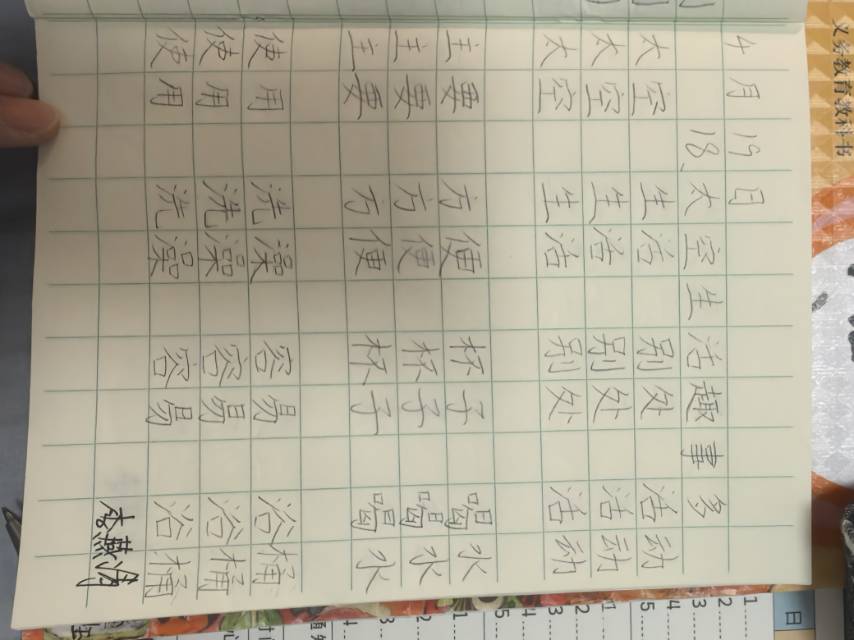 义务教育教科书
4月19日
18、太空生活趣事多
太空 生活 别处 活动
太空 生活 别处 活动
太空 生活 别处 活动
主要 方便 杯子 喝水
主要 方便 杯子 喝水
主要 方便 杯子 喝水
使用 洗澡 容易 浴桶
使用 洗澡 容易 浴桶
使用 洗澡 容易 浴桶
李燕
日